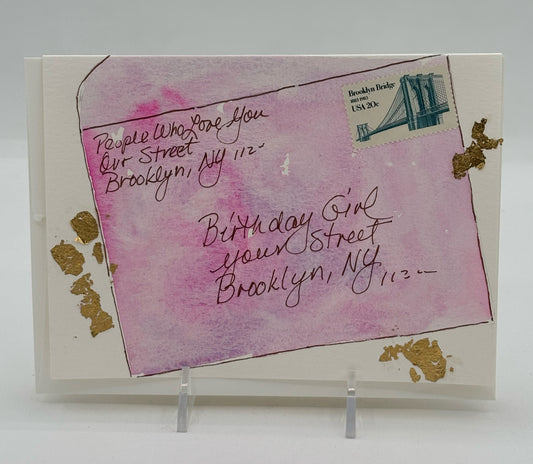 Brooklyn Bridge
1883-1983
USA 20c
People Who Love You
Our Street
Brooklyn, NY 112~
Birthday Girl
Your Street
Brooklyn, NY 112~